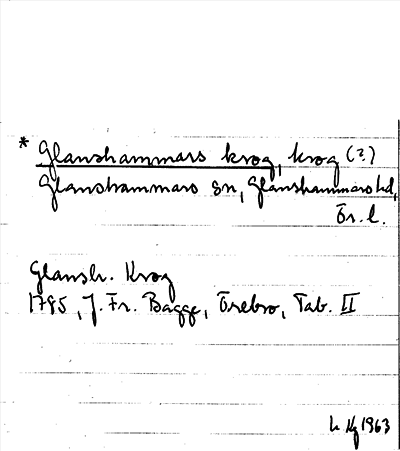 * Glanshammars krog, krog (?)
Glanshammars sn, Glanshammars hd,
Ör. l.
Glansh. Krog
1785, J. Fr. Bagge, Örebro, Tab. II
1963